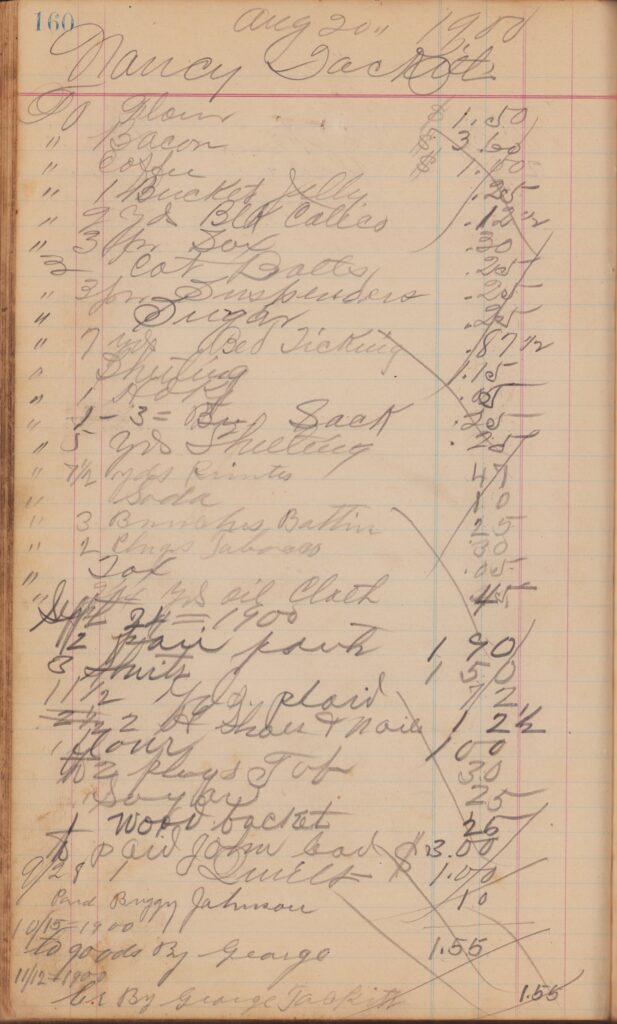 160
Aug 20" 1900
Nancy Tackitt
To Flour 1.50
" Bacon 3.60
" Coffee 1.00
" 1 Bucket Jelly .25
" 9 yds Blk Calico .12 1/2
" 3 pr Sox .30
" 3 Cot Batts .25
" 3 pr Suspenders .25
" Sugar .25
" 7 yds Bed Ticking .87 1/2
" Shirting .15
" 1
" 1 - 3 = Bu Sack .25
" 5 yds Shirting 25
" 7 1/2 yds Prints 47
" Soda 10
" 3 Bunches Battin 25
" 2 Plugs Tobacco 30
" Tox .05
" yds oil Cloth 45
Sept 24 = 1900
1/2 pair pants 1 90
3 Shirts 1 50
11 1/2 yds plaid 72
2 Shoes & Nails 1 2 1/2
1 flour 1 00
to 2 plugs Tob 30
Sugar 25
1 wood bocket 25
to paid John $3.00
9/28 Quilts 1.00
Paid Buggy Johnson 10
10/15 = 1900
to goods By George 1.55
11/12 = 1900
Cr By George Tackitt 1.55